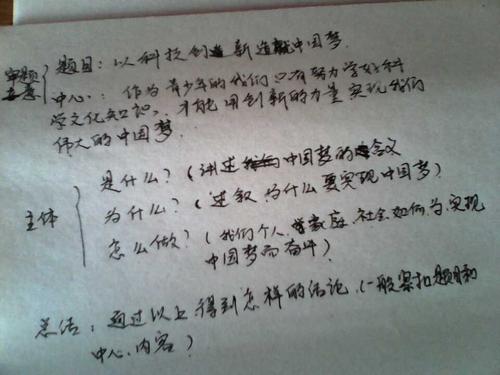 审题立意
题目：以科技创新造就中国梦.
中心：作为青少年的我们只有努力学好科
学文化知识，才能用创新的力量实现我们
伟大的中国梦.
主体
是什么？（讲述中国梦的含义
为什么？（述叙为什么要实现中国梦）
怎么做？（我们个人、家庭、社会如何为实现
中国梦而奋斗）
总结：通过以上得到怎样的结论.（一般紧扣题目和
中心、内容）